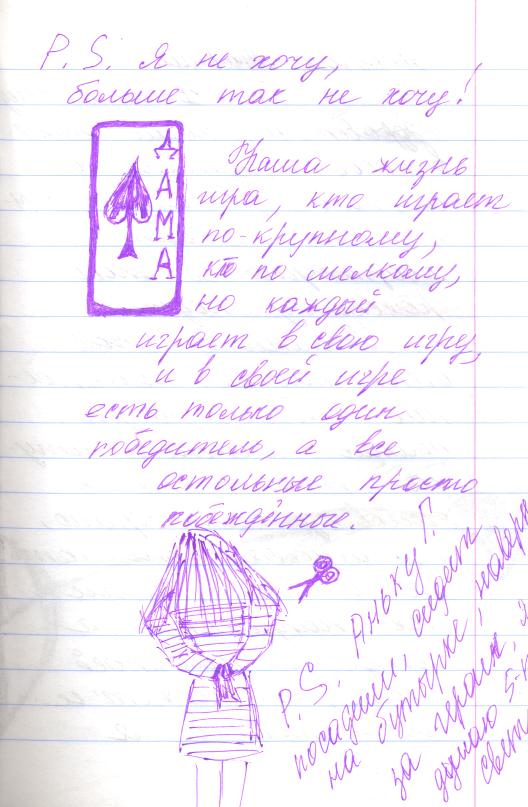 P. S. Я не хочу,
больше так не хочу!
ДАМА
Наша жизнь
игра, кто играет
по-крупному,
кто по мелкому,
но каждый
играет в свою игру,
и в своей игре
есть только один
победитель, а все
остольные просто
побеждённые.
P. S. Аньку Г.
посадили, сидит
на бутырке,
за героин, я
думаю 5-
свет